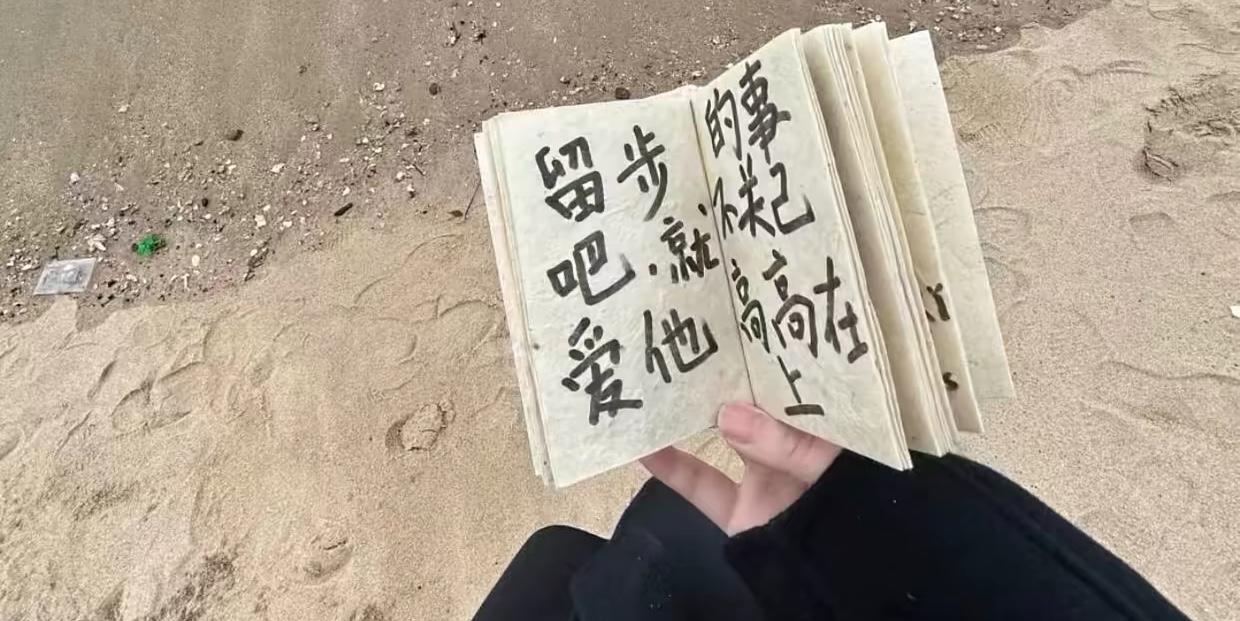 留步
吧·就·
爱他
的事
不关己
高高在
上